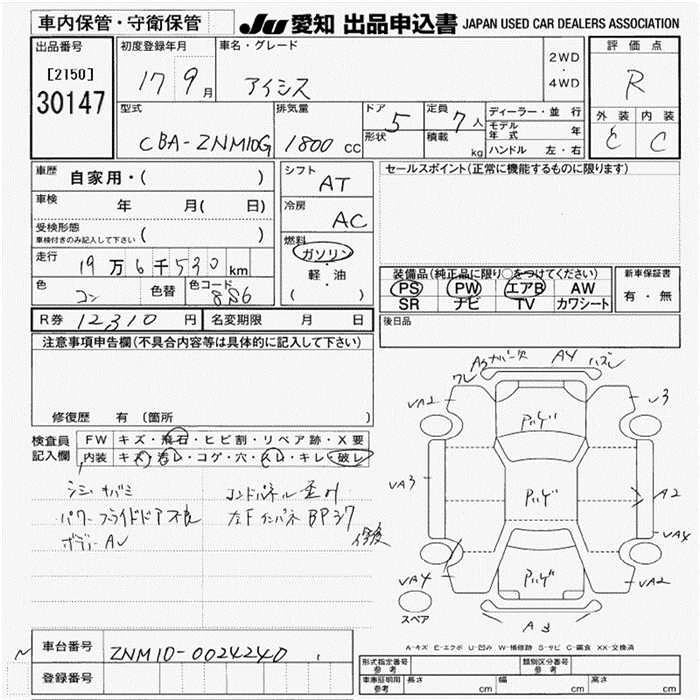 車内保管・守衛保管
JU 愛知 出品申込書 JAPAN USED CAR DEALERS ASSOCIATION
出品番号
[2150]
30147
初度登録年月
17 9月
車名・グレード
アイシス
2WD
・
4WD
評価点
R
外装 内装
C C
型式
CBA-ZNM10G
排気量
1800 CC
ドア 5
形状
定員 7人
積載 kg
ディーラー・並行
モデル年式 年
ハンドル 左・右
車歴
自家用・( )
車検
年 月( 日)
受検形態
車検付きのみ記入して下さい ( )
走行
19万6千530km
色
コン
色替
色コード
8S6
シフト
AT
冷房
AC
燃料
ガソリン
・
軽・油
( )
セールスポイント(正常に機能するものに限ります)
装備品(純正品に限り○をつけてください)
PS PW エアB AW
SR ナビ TV カワシート
新車保証書
有・無
R券 12,310 円
名変期限 月 日
後日品
注意事項申告欄(不具合内容等は具体的に記入して下さい)
修復歴 有 (箇所 )
検査員
記入欄
FW キズ・飛石・ヒビ割・リペア跡・X要
内装 キズ・汚レ・コゲ・穴・スレ・キレ・破レ
パワースライドドア不良
ボデー AU
コアパネル歪み
左Fインパネ BP
修後
A3 ナンバー欠 A4 ハズレ
ワレ
UA2
U3
UA3
A2
UA4
UA4
UA2
A3
スペア
A-キズ E-エクボ U-凹み W-補修跡 S-サビ C-腐食 XX-交換済
車台番号
ZNM10-0024240
登録番号
形式指定番号
参考
類別区分番号
参考
車庫証明用
参考
長さ cm
幅 cm
高さ cm